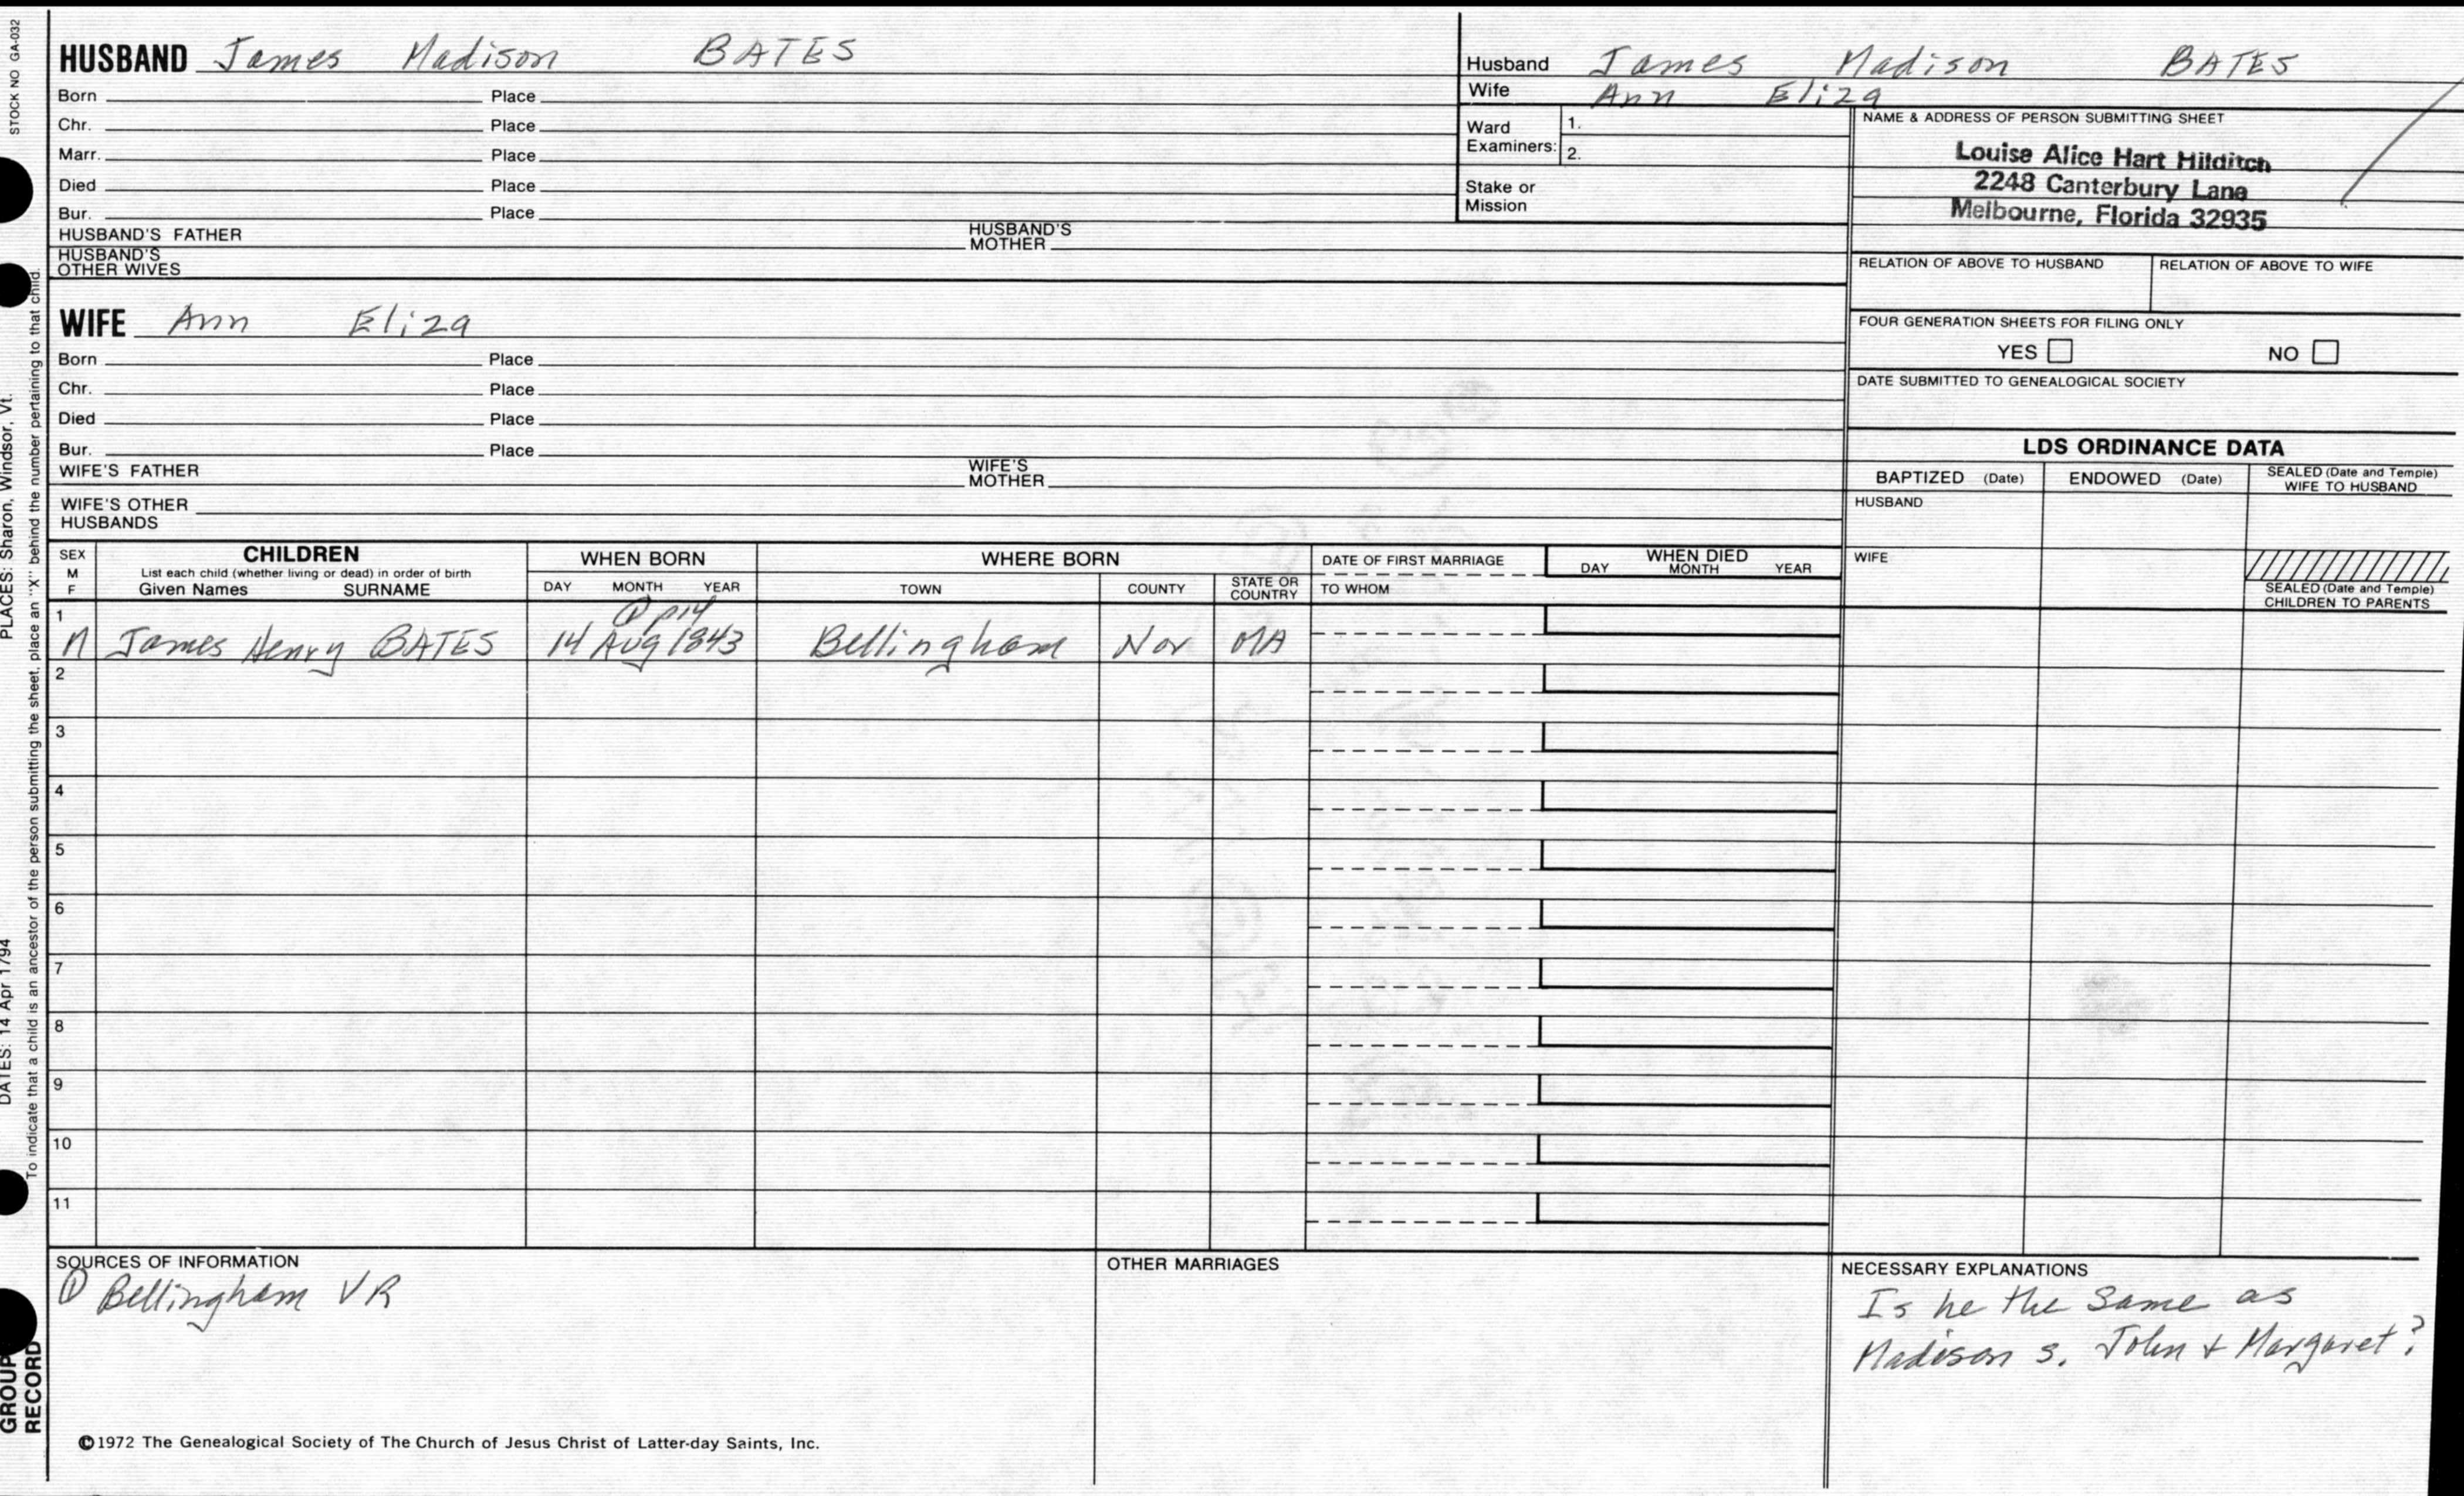 STOCK NO GA-032
HUSBAND James Madison BATES
Born Place
Chr. Place
Marr. Place
Died Place
Bur. Place
HUSBAND'S FATHER HUSBAND'S MOTHER
HUSBAND'S OTHER WIVES
Husband James Madison BATES
Wife Ann Eliza
Ward Examiners: 1.
2.
Stake or Mission
NAME & ADDRESS OF PERSON SUBMITTING SHEET
Louise Alice Hart Hilditch
2248 Canterbury Lane
Melbourne, Florida 32935
RELATION OF ABOVE TO HUSBAND RELATION OF ABOVE TO WIFE
FOUR GENERATION SHEETS FOR FILING ONLY
YES NO
DATE SUBMITTED TO GENEALOGICAL SOCIETY
WIFE Ann Eliza
Born Place
Chr. Place
Died Place
Bur. Place
WIFE'S FATHER WIFE'S MOTHER
WIFE'S OTHER HUSBANDS
LDS ORDINANCE DATA
BAPTIZED (Date) ENDOWED (Date) SEALED (Date and Temple) WIFE TO HUSBAND
HUSBAND
WIFE
SEALED (Date and Temple) CHILDREN TO PARENTS
SEX M F
CHILDREN
List each child (whether living or dead) in order of birth
Given Names SURNAME
WHEN BORN
DAY MONTH YEAR
WHERE BORN
TOWN COUNTY STATE OR COUNTRY
DATE OF FIRST MARRIAGE
TO WHOM
WHEN DIED
DAY MONTH YEAR
① p14
1 M James Henry BATES 14 Aug 1843 Bellingham Nor MA
2
3
4
5
6
7
8
9
10
11
SOURCES OF INFORMATION
① Bellingham VR
OTHER MARRIAGES
NECESSARY EXPLANATIONS
Is he the same as
Madison s. John + Margaret?
©1972 The Genealogical Society of The Church of Jesus Christ of Latter-day Saints, Inc.
PLACES: Sharon, Windsor, Vt.
DATES: 14 Apr 1794
To indicate that a child is an ancestor of the person submitting the sheet, place an "X" behind the number pertaining to that child.
GROUP
RECORD